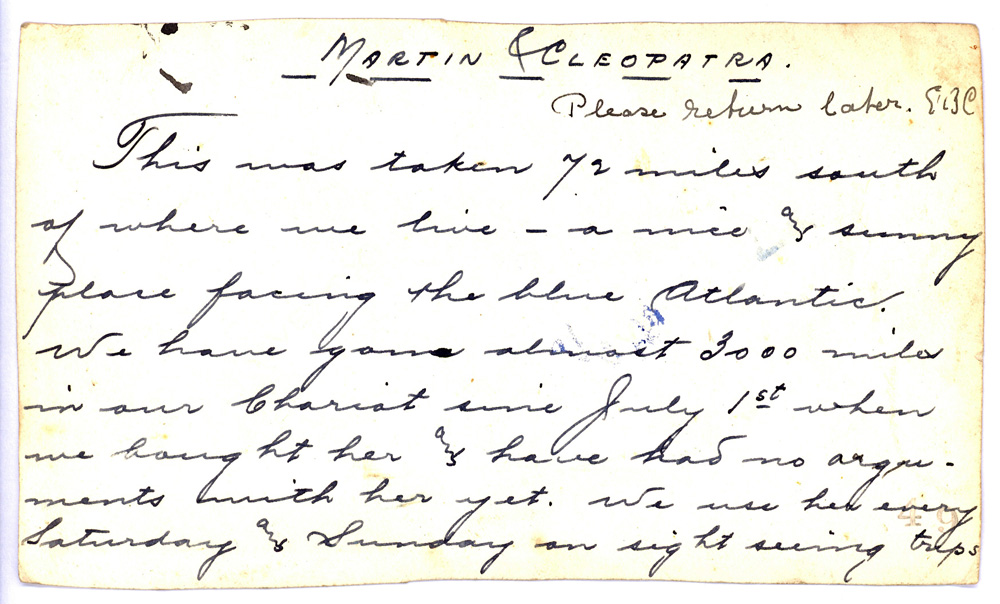 MARTIN & CLEOPATRA.
Please return later. EBC
This was taken 72 miles south
of where we live - a nice & sunny
place facing the blue Atlantic.
We have gone almost 3000 miles
in our Chariot sine July 1st when
we bought her & have had no argu-
ments with her yet. We use her every
Saturday & Sunday on sight seeing trips